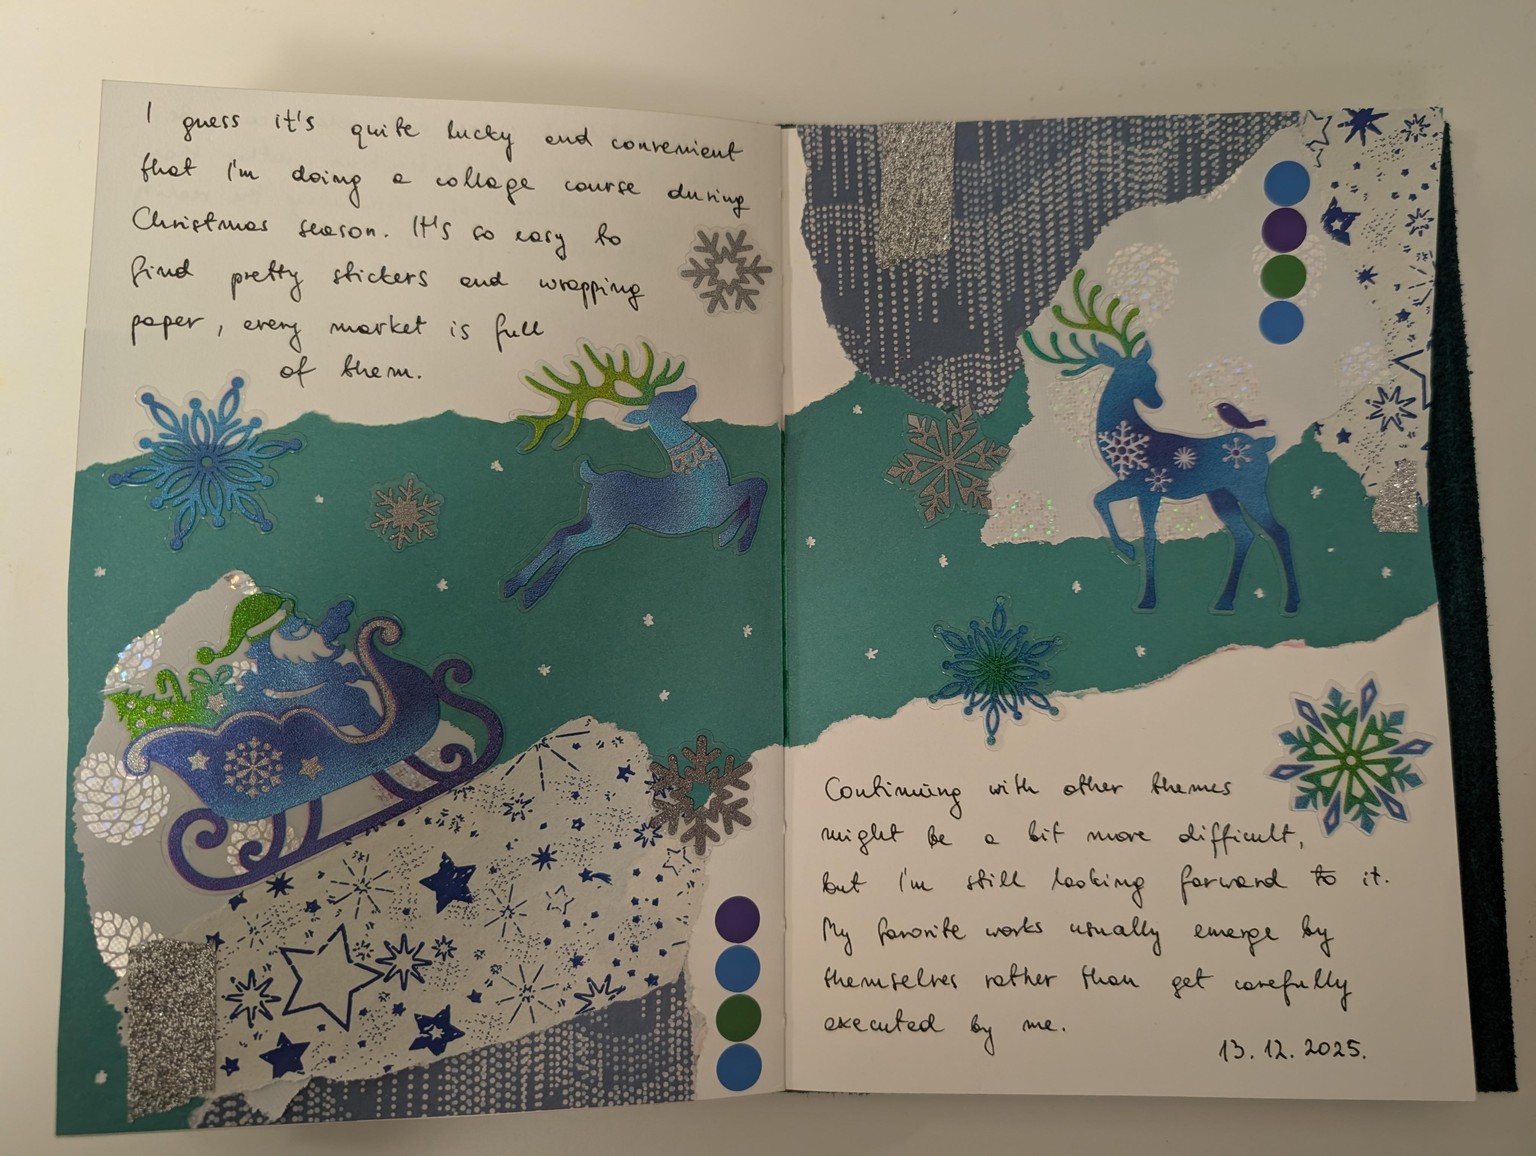 I guess it's quite lucky and convenient
that I'm doing a collage course during
Christmas season. It's so easy to
find pretty stickers and wrapping
paper, every market is full
of them.
Continuing with other themes
might be a bit more difficult,
but I'm still looking forward to it.
My favorite works usually emerge by
themselves rather than get carefully
executed by me.
13.12.2025.